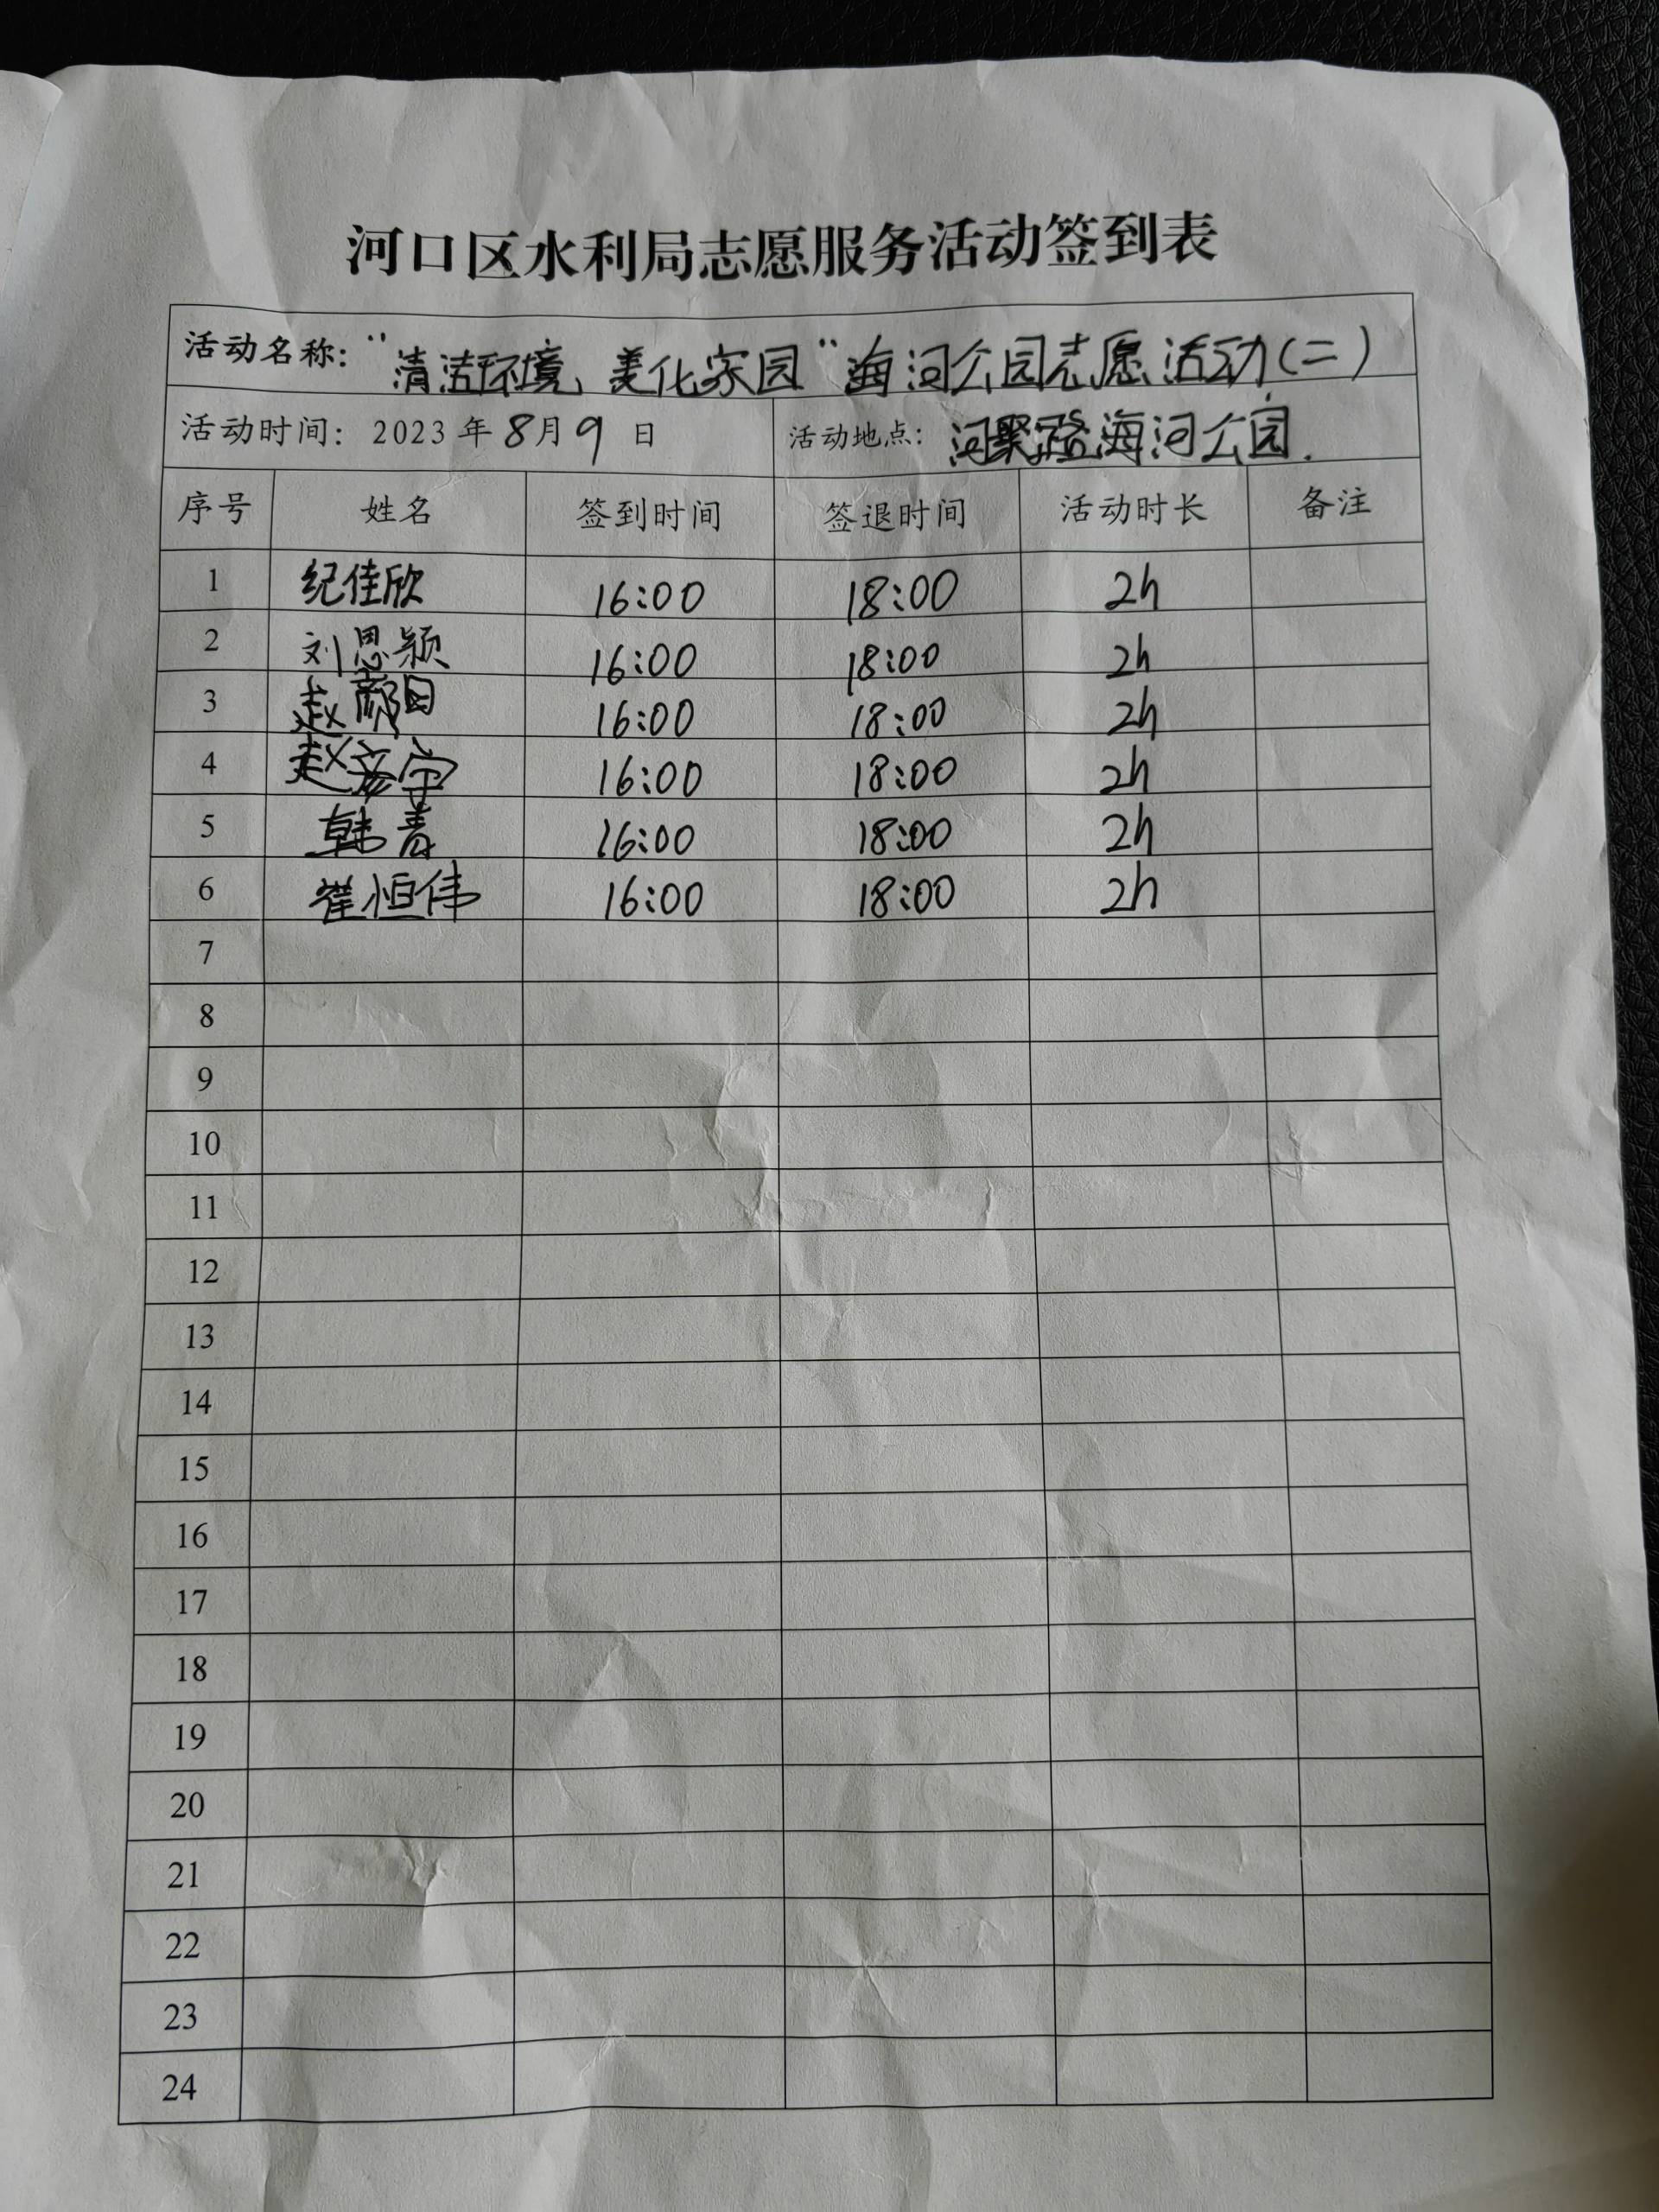 河口区水利局志愿服务活动签到表
活动名称：“清洁环境，美化家园”海河公园志愿活动（二）
活动时间：2023年8月9日 活动地点：河聚路海河公园.
序号 姓名 签到时间 签退时间 活动时长 备注
1 纪佳欣 16:00 18:00 2h
2 刘思颖 16:00 18:00 2h
3 赵 16:00 18:00 2h
4 赵彦宇 16:00 18:00 2h
5 韩青 16:00 18:00 2h
6 崔恒伟 16:00 18:00 2h
7
8
9
10
11
12
13
14
15
16
17
18
19
20
21
22
23
24